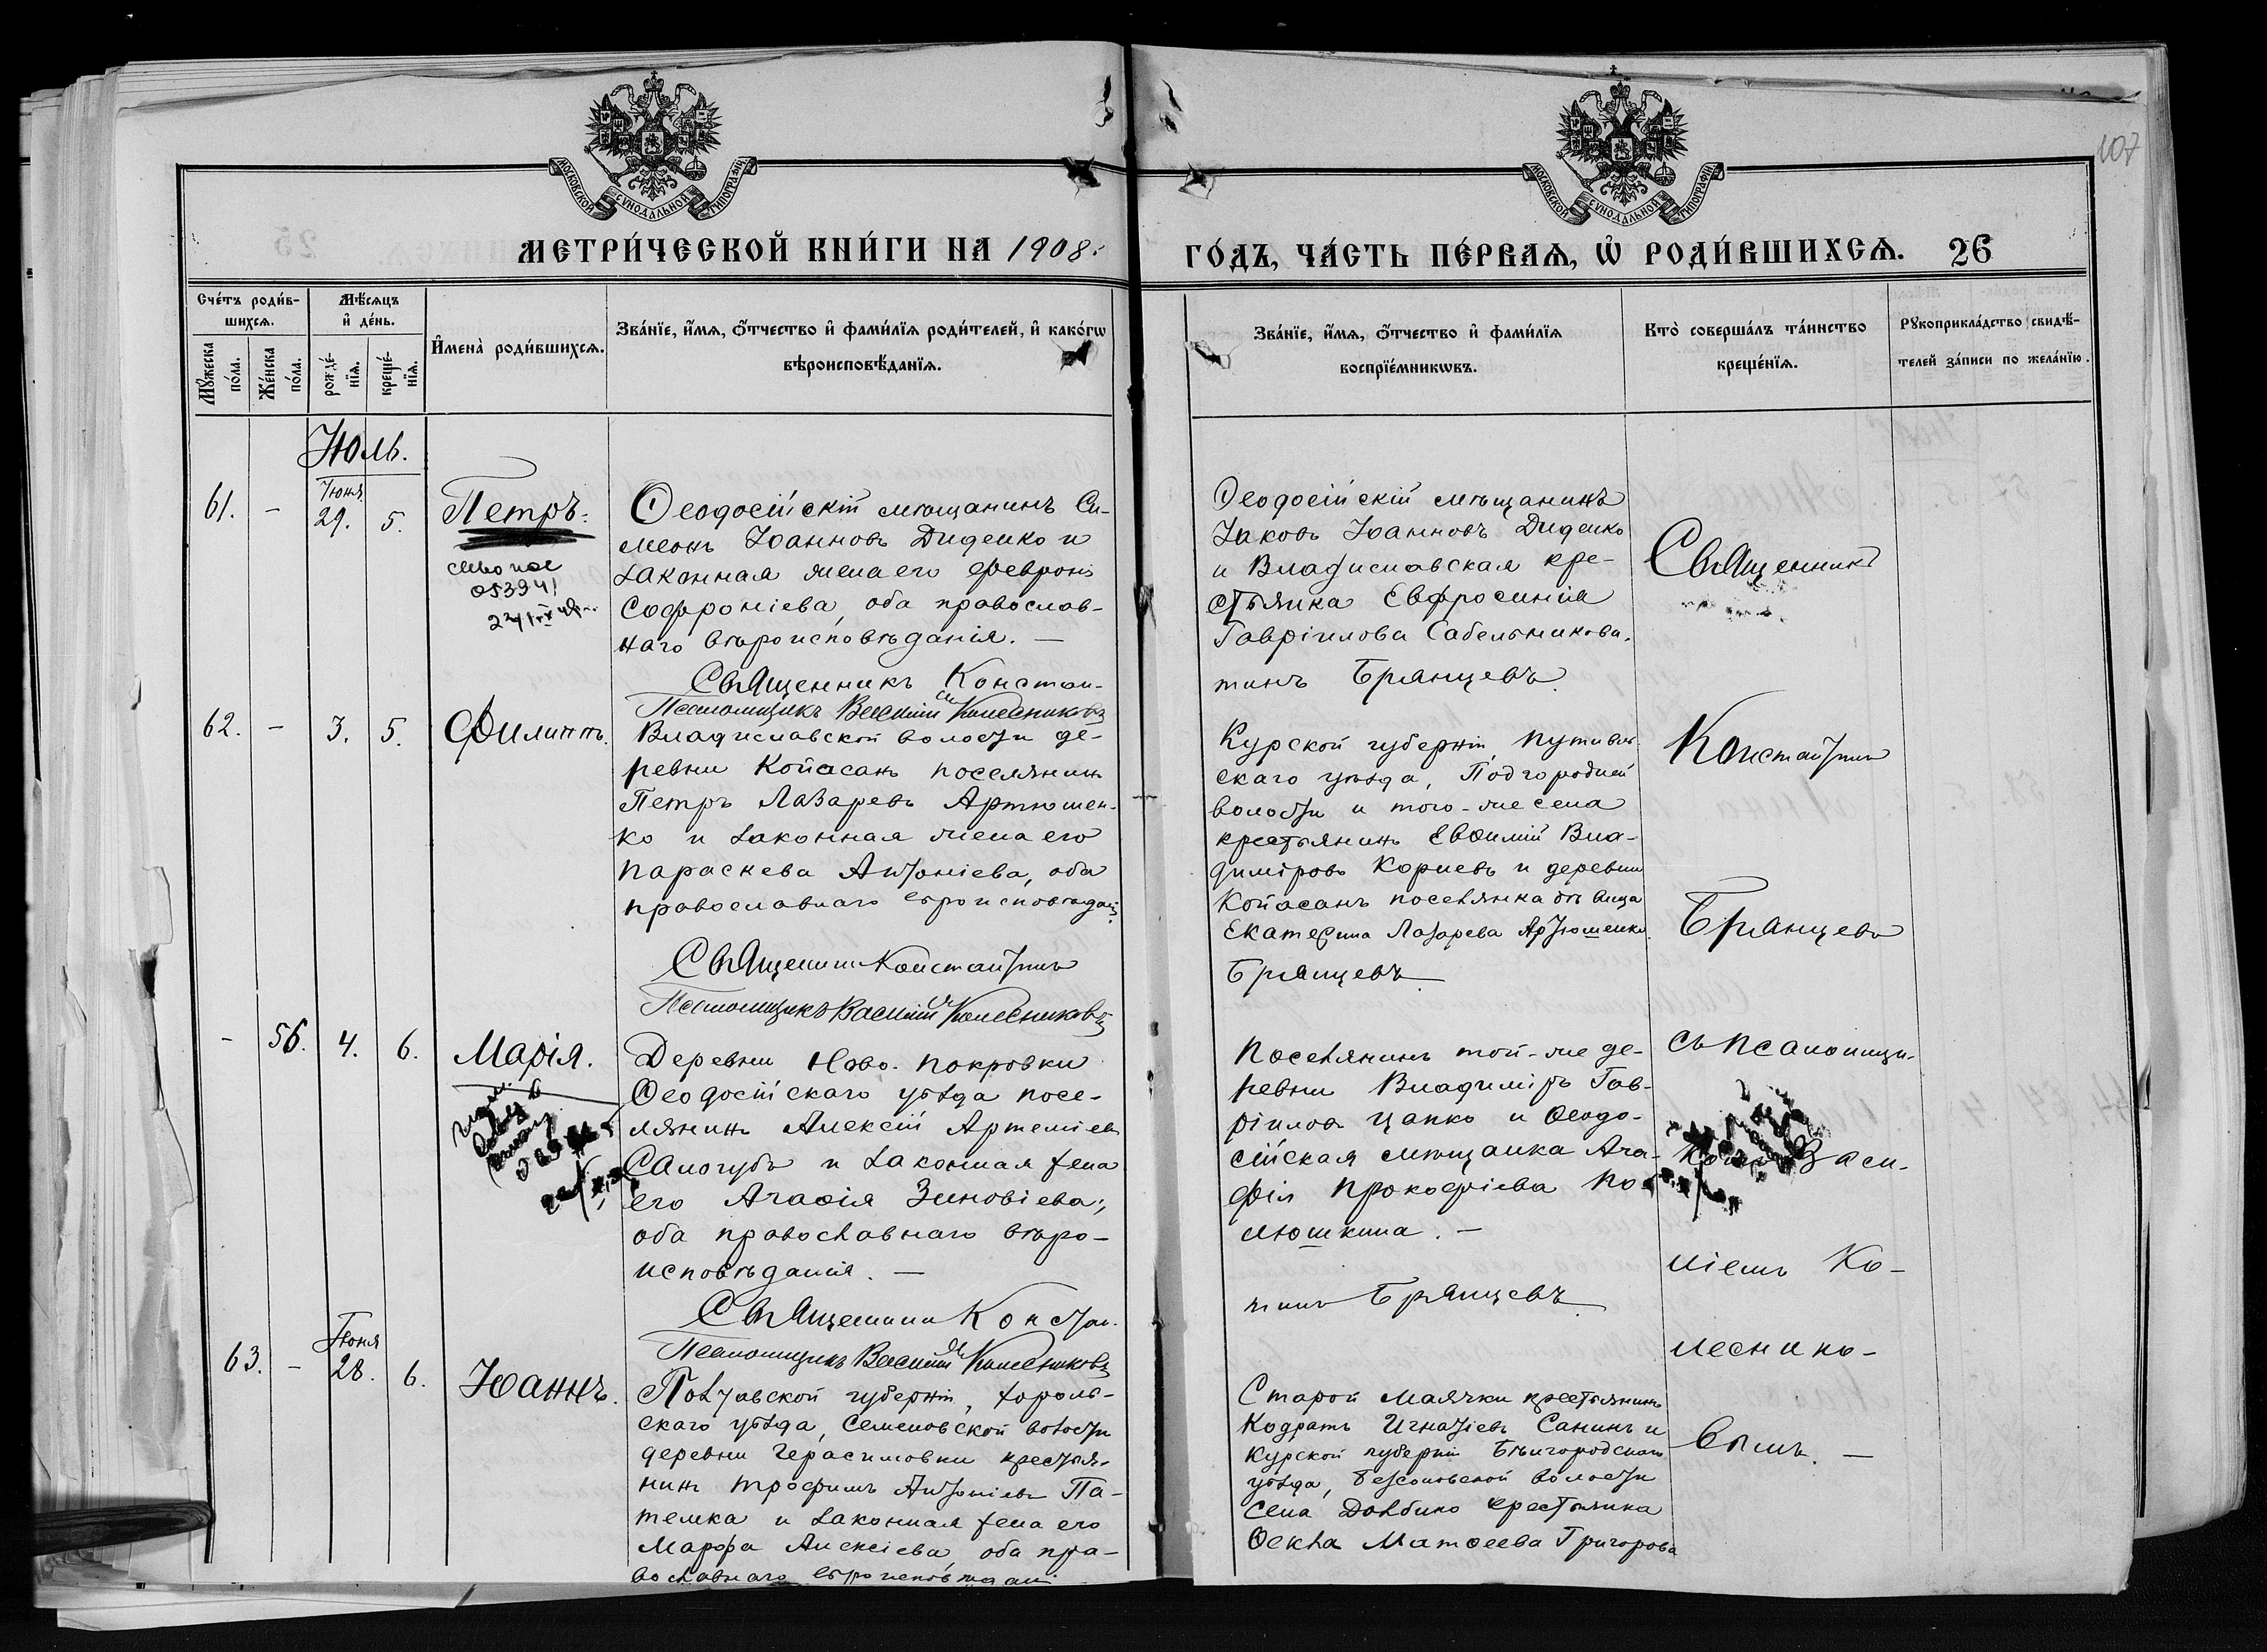 107
МОСКОВСКОЙ СУНОДАЛЬНОЙ ТИПОГРАФІИ
МОСКОВСКОЙ СУНОДАЛЬНОЙ ТИПОГРАФІИ
МЕТРИ́ЧЕСКОЙ КНИ́ГИ НА 1908.
ГО́ДЪ, ЧА́СТЬ ПЕ́РВАѦ, Ѡ҆ РОДИ́ВШИХСѦ. 26
Сче́тъ роди́в-
шихсѧ.
Мꙋ́жеска по́ла.
Же́нска по́ла.
Мѣ́сѧцъ
и҆ де́нь.
рожде́-
нїѧ.
креще́-
нїѧ.
И҆мена̀ роди́вшихсѧ.
Зва́нїе, и҆́мѧ, ѻ҆́тчество и҆ фами́лїѧ роди́телей, и҆ како́гѡ
вѣроисповѣ́данїѧ.
Зва́нїе, и҆́мѧ, ѻ҆́тчество и҆ фами́лїѧ
воспрїе́мникѡвъ.
Кто̀ соверша́лъ та́инство
креще́нїѧ.
Рꙋкоприкла́дство свидѣ́-
телей за́писи по жела́нїю.
Іюль.
61.
-
Іюня
29.
5.
Петръ.
05394
Ѳеодосійскій мѣщанинъ Си-
меонъ Іоанновъ Диденко и
законная жена его Феврон
Софроніева, оба православ-
наго вѣроисповѣданія. —
Священникъ Констан-
Псаломщикъ Василій Колесниковъ
Ѳеодосійскій мѣщанинъ
Іаковъ Іоанновъ Диденко
и Владиславская кре-
стьянка Евфросинія
Гавріилова Сабельникова.
тинъ Брянцевъ.
62.
-
3.
5.
Филиппъ.
Владиславской волости де-
ревни Копасанъ поселянинъ
Петръ Лазаревъ Артюшен-
ко и законная жена его
Параскева Антоніева, оба
православнаго вѣроисповѣдан.
Священникъ Константинъ
Псаломщикъ Василій Колесниковъ
Курской губерніи, Путивль-
скаго уѣзда, Подгородней
волости и того-же села
крестьянинъ Евѳимій Вла-
диміровъ Корневъ и деревни
Копасанъ поселянка дѣвица
Екатерина Лазарева Артюшенко.
Брянцевъ.
-
56.
4.
6.
Марія.
Деревни Ново-Покровки
Ѳеодосійскаго уѣзда посе-
лянинъ Алексій Артеміевъ
Самогубъ и законная жена
его Агаѳія Зиновіева,
оба православнаго вѣро-
исповѣданія. —
Священникъ Констан-
Псаломщикъ Василій Колесниковъ
Поселянинъ той-же де-
ревни Владиміръ Гав-
ріиловъ Цапко и Ѳеодо-
сійская мѣщанка Ага-
фія Прокофіева По-
люшкина. —
тинъ Брянцевъ.
63.
-
Іюня
28.
6.
Іоаннъ.
Полтавской губерніи, Хороль-
скаго уѣзда, Семеновской волости
деревни Герасимовки крестья-
нинъ Трофимъ Антоніевъ Па-
телка и законная жена его
Марфа Алексіева, оба пра-
вославнаго вѣроисповѣдані
Старой Маячки крестьянинъ
Кодратъ Игнатіевъ Санинъ и
Курской губерніи Бѣлгородскаго
уѣзда, Безсоновской волости
села Долбино крестьянка
Ѳекла Матѳеева Григорова
Священникъ
Константинъ
Брянцевъ
съ псаломщи-
комъ Васи-
ліемъ Ко-
леснико-
вымъ. —